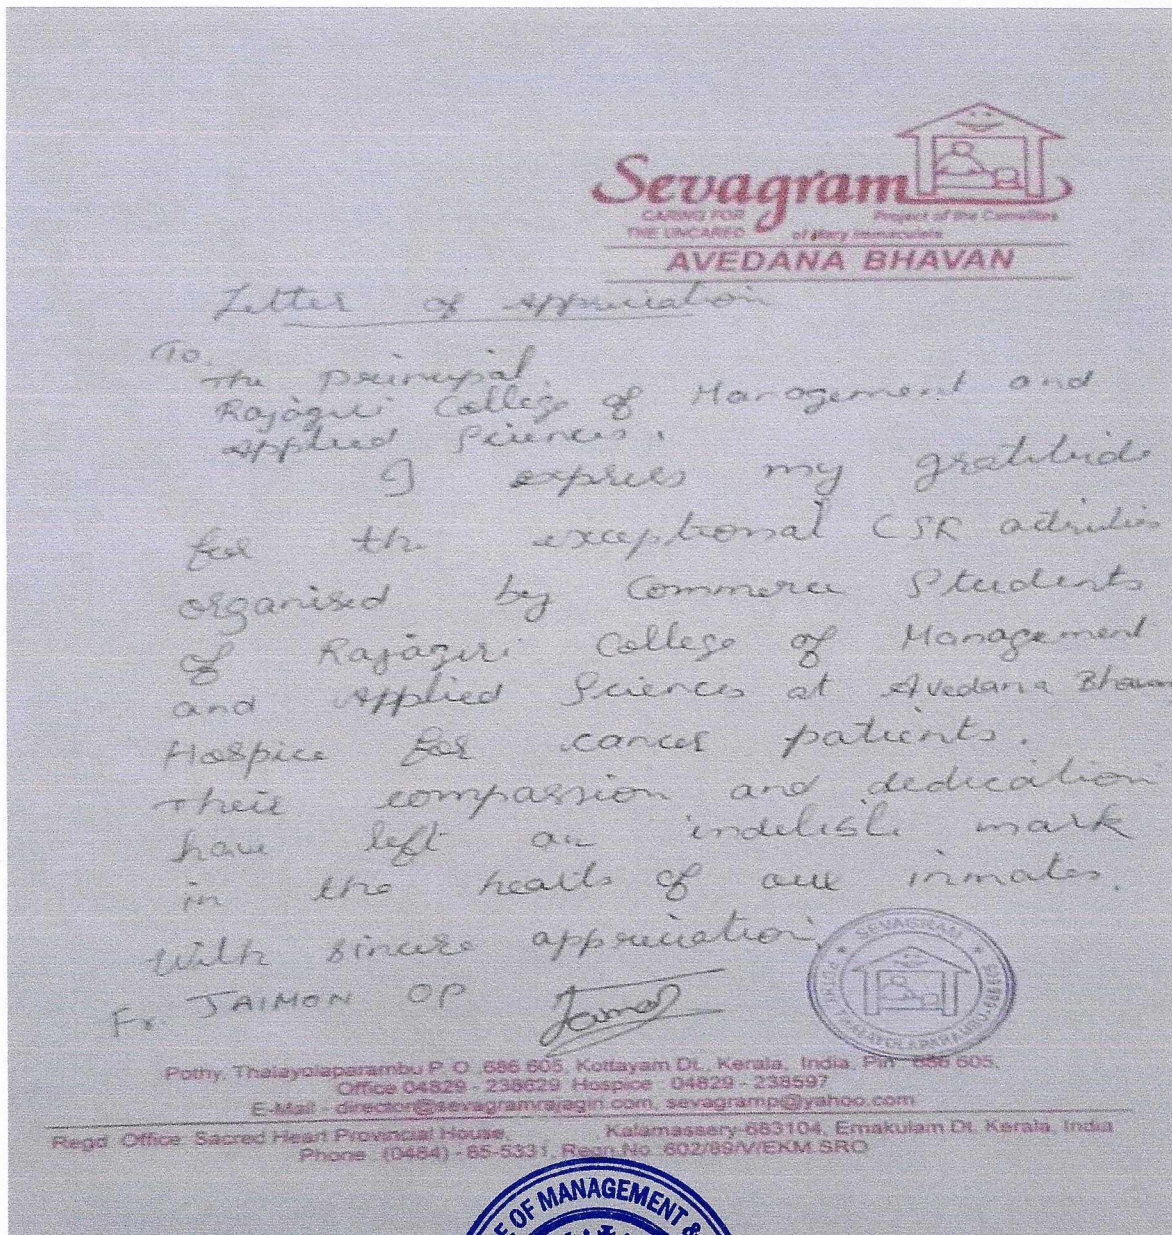 Sevagram
CARING FOR
THE UNCARED
Project of the Carmelites
of Mary Immaculate
AVEDANA BHAVAN
Letter of appreciation
To,
The principal
Rajagiri College of Management and
Applied Sciences.
I express my gratitude
for the exceptional CSR activities
organised by Commerce Students
of Rajagiri College of Management
and Applied Sciences at Avedana Bhavan
Hospice for cancer patients.
Their compassion and dedication
have left an indelible mark
in the hearts of our inmates.
With sincere appreciation,
Fr. JAIMON OP
SEVAGRAM
POTHY THALAYOLAPARAMBU-686605
Pothy, Thalayolaparambu P. O. 686 605, Kottayam Dt., Kerala, India, Pin 686 605,
Office 04829 - 238629 Hospice : 04829 - 238597
E-Mail - director@sevagramrajagiri.com, sevagramp@yahoo.com
Regd. Office: Sacred Heart Provincial House, Kalamassery-683104, Ernakulam Dt. Kerala, India
Phone : (0484) - 85-5331, Regn.No. 602/89/V/EKM SRO
OF MANAGEMENT &